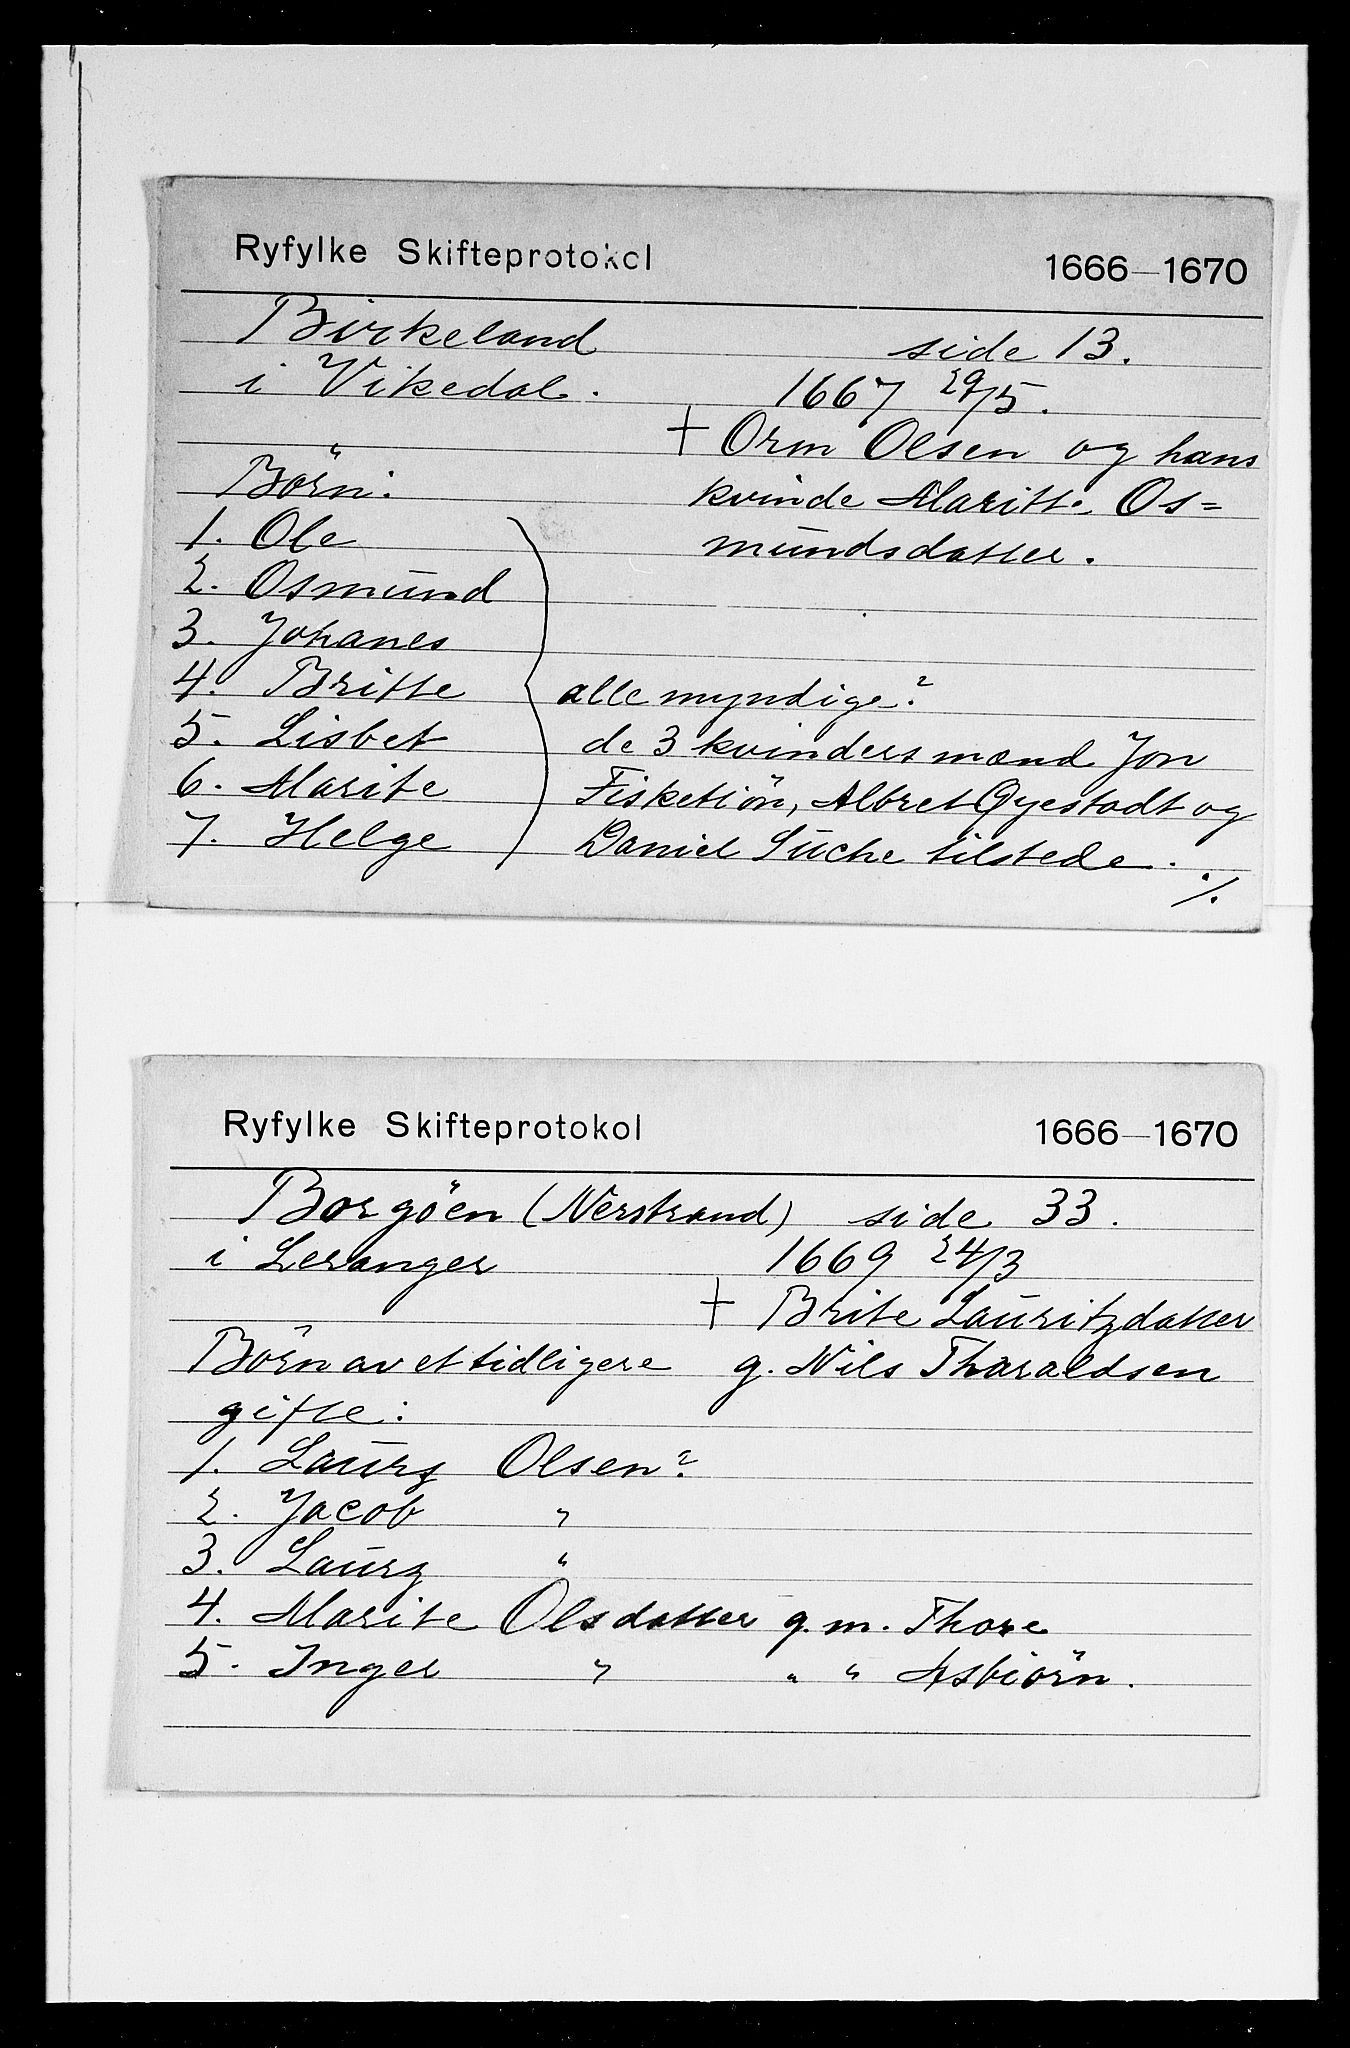 Ryfylke Skifteprotokol 1666—1670
Birkeland side 13.
i Vikedal. 1667 29/5.
† Orm Olsen og hans
Börn: kvinde Maritte Os=
1. Ole mundsdatter.
2. Osmund
3. Johanes
4. Britte alle myndige?
5. Lisbet de 3 kvinders mænd Jon
6. Marite Fisketiön, Albret Øyestadt og
7. Helge Daniel Suche tilstede. ./.
Ryfylke Skifteprotokol 1666—1670
Borgöen (Nerstrand) side 33.
i Leranger 1669 24/3
† Brite Lauritzdatter
Börn av et tidligere g. Nils Tharaldsen
gifte:
1. Laurz Olsen?
2. Jacob "
3. Laurz "
4. Marite Olsdatter g. m. Thore
5. Inger " " " Asbiörn.